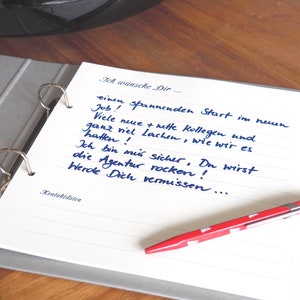 Ich wünsche Dir ...
einen spannenden Start im neuen
Job!
Viele neue + nette Kollegen und
ganz viel Lachen, wie wir es
hatten!
Ich bin mir sicher, Du wirst
die Agentur rocken!
Werde Dich vermissen ...
Kontaktdaten